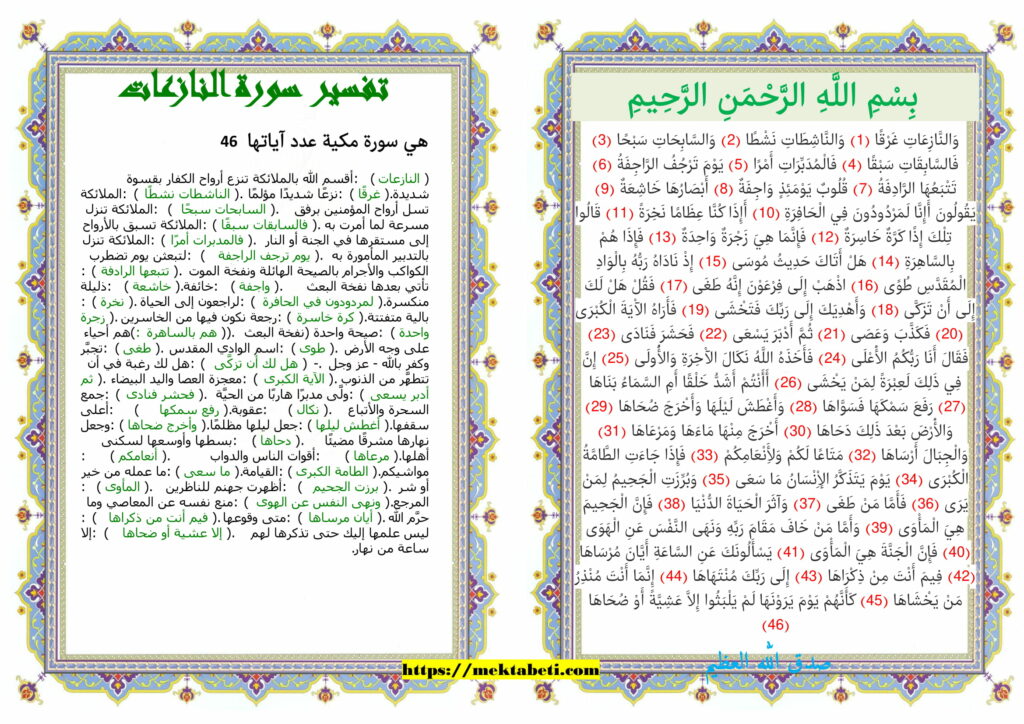 بِسْمِ اللَّهِ الرَّحْمَنِ الرَّحِيمِ
وَالنَّازِعَاتِ غَرْقًا (1) وَالنَّاشِطَاتِ نَشْطًا (2) وَالسَّابِحَاتِ سَبْحًا (3)
فَالسَّابِقَاتِ سَبْقًا (4) فَالْمُدَبِّرَاتِ أَمْرًا (5) يَوْمَ تَرْجُفُ الرَّاجِفَةُ (6)
تَتْبَعُهَا الرَّادِفَةُ (7) قُلُوبٌ يَوْمَئِذٍ وَاجِفَةٌ (8) أَبْصَارُهَا خَاشِعَةٌ (9)
يَقُولُونَ أَإِنَّا لَمَرْدُودُونَ فِي الْحَافِرَةِ (10) أَإِذَا كُنَّا عِظَامًا نَخِرَةً (11) قَالُوا
تِلْكَ إِذًا كَرَّةٌ خَاسِرَةٌ (12) فَإِنَّمَا هِيَ زَجْرَةٌ وَاحِدَةٌ (13) فَإِذَا هُمْ
بِالسَّاهِرَةِ (14) هَلْ أَتَاكَ حَدِيثُ مُوسَى (15) إِذْ نَادَاهُ رَبُّهُ بِالْوَادِ
الْمُقَدَّسِ طُوًى (16) اذْهَبْ إِلَى فِرْعَوْنَ إِنَّهُ طَغَى (17) فَقُلْ هَلْ لَكَ
إِلَى أَنْ تَزَكَّى (18) وَأَهْدِيَكَ إِلَى رَبِّكَ فَتَخْشَى (19) فَأَرَاهُ الآيَةَ الْكُبْرَى
(20) فَكَذَّبَ وَعَصَى (21) ثُمَّ أَدْبَرَ يَسْعَى (22) فَحَشَرَ فَنَادَى (23)
فَقَالَ أَنَا رَبُّكُمُ الأَعْلَى (24) فَأَخَذَهُ اللَّهُ نَكَالَ الآخِرَةِ وَالأُولَى (25) إِنَّ
فِي ذَلِكَ لَعِبْرَةً لِمَنْ يَخْشَى (26) أَأَنْتُمْ أَشَدُّ خَلْقًا أَمِ السَّمَاءُ بَنَاهَا
(27) رَفَعَ سَمْكَهَا فَسَوَّاهَا (28) وَأَغْطَشَ لَيْلَهَا وَأَخْرَجَ ضُحَاهَا (29)
وَالأَرْضَ بَعْدَ ذَلِكَ دَحَاهَا (30) أَخْرَجَ مِنْهَا مَاءَهَا وَمَرْعَاهَا (31)
وَالْجِبَالَ أَرْسَاهَا (32) مَتَاعًا لَكُمْ وَلأَنْعَامِكُمْ (33) فَإِذَا جَاءَتِ الطَّامَّةُ
الْكُبْرَى (34) يَوْمَ يَتَذَكَّرُ الإِنْسَانُ مَا سَعَى (35) وَبُرِّزَتِ الْجَحِيمُ لِمَنْ
يَرَى (36) فَأَمَّا مَنْ طَغَى (37) وَآثَرَ الْحَيَاةَ الدُّنْيَا (38) فَإِنَّ الْجَحِيمَ
هِيَ الْمَأْوَى (39) وَأَمَّا مَنْ خَافَ مَقَامَ رَبِّهِ وَنَهَى النَّفْسَ عَنِ الْهَوَى
(40) فَإِنَّ الْجَنَّةَ هِيَ الْمَأْوَى (41) يَسْأَلُونَكَ عَنِ السَّاعَةِ أَيَّانَ مُرْسَاهَا
(42) فِيمَ أَنْتَ مِنْ ذِكْرَاهَا (43) إِلَى رَبِّكَ مُنْتَهَاهَا (44) إِنَّمَا أَنْتَ مُنْذِرُ
مَنْ يَخْشَاهَا (45) كَأَنَّهُمْ يَوْمَ يَرَوْنَهَا لَمْ يَلْبَثُوا إِلاَّ عَشِيَّةً أَوْ ضُحَاهَا
(46)
صدق الله العظيم
تفسير سورة النازعات
هي سورة مكية عدد آياتها 46
( النازعات ) :أقسم الله بالملائكة تنزع أرواح الكفار بقسوة
شديدة.( غرقًا ) :نزعًا شديدًا مؤلمًا .( الناشطات نشطًا ) :الملائكة
تسل أرواح المؤمنين برفق .( السابحات سبحًا ) :الملائكة تنزل
مسرعة لما أمرت به .( فالسابقات سبقًا ) :الملائكة تسبق بالأرواح
إلى مستقرها في الجنة أو النار .( فالمدبرات أمرًا ) :الملائكة تنزل
بالتدبير المأمورة به .( يوم ترجف الراجفة ) :لتبعثن يوم تضطرب
الكواكب والأجرام بالصيحة الهائلة ونفخة الموت .( تتبعها الرادفة ) :
تأتي بعدها نفخة البعث .( واجفة ) :خائفة.( خاشعة ) :ذليلة
منكسرة.( لمردودون في الحافرة ) :لراجعون إلى الحياة .( نخرة ) :
بالية متفتتة.( كرة خاسرة ) :رجعة نكون فيها من الخاسرين .( زجرة
واحدة ) :صيحة واحدة (نفخة البعث .)( هم بالساهرة :)هم أحياء
على وجه الأرض .( طوى ) :اسم الوادي المقدس .( طغى ) :تجبَّر
وكفر بالله - عز وجل -.( هل لك أن تزكَّى ) :هل لك رغبة في أن
تتطهَّر من الذنوب .( الآية الكبرى ) :معجزة العصا واليد البيضاء .( ثم
أدبر يسعى ) :ولَّى مدبرًا هاربًا من الحيَّة .( فحشر فنادى ) :جمع
السحرة والأتباع .( نكال ) :عقوبة.( رفع سمكها ) :أعلى
سقفها.( أغطش ليلها ) :جعل ليلها مظلمًا.( وأخرج ضحاها ) :وجعل
نهارها مشرقًا مضيئًا .( دحاها ) :بسطها وأوسعها لسكنى
أهلها.( مرعاها ) :أقوات الناس والدواب .( أنعامكم ) :
مواشيكم.( الطامة الكبرى ) :القيامة.( ما سعى ) :ما عمله من خير
أو شر .( برزت الجحيم ) :أظهرت جهنم للناظرين .( المأوى ) :
المرجع.( ونهى النفس عن الهوى ) :منع نفسه عن المعاصي وما
حرَّم الله .( أيان مرساها ) :متى وقوعها.( فيم أنت من ذكراها ) :
ليس علمها إليك حتى تذكرها لهم .( إلا عشية أو ضحاها ) :إلا
ساعة من نهار.
https://mektabeti.com